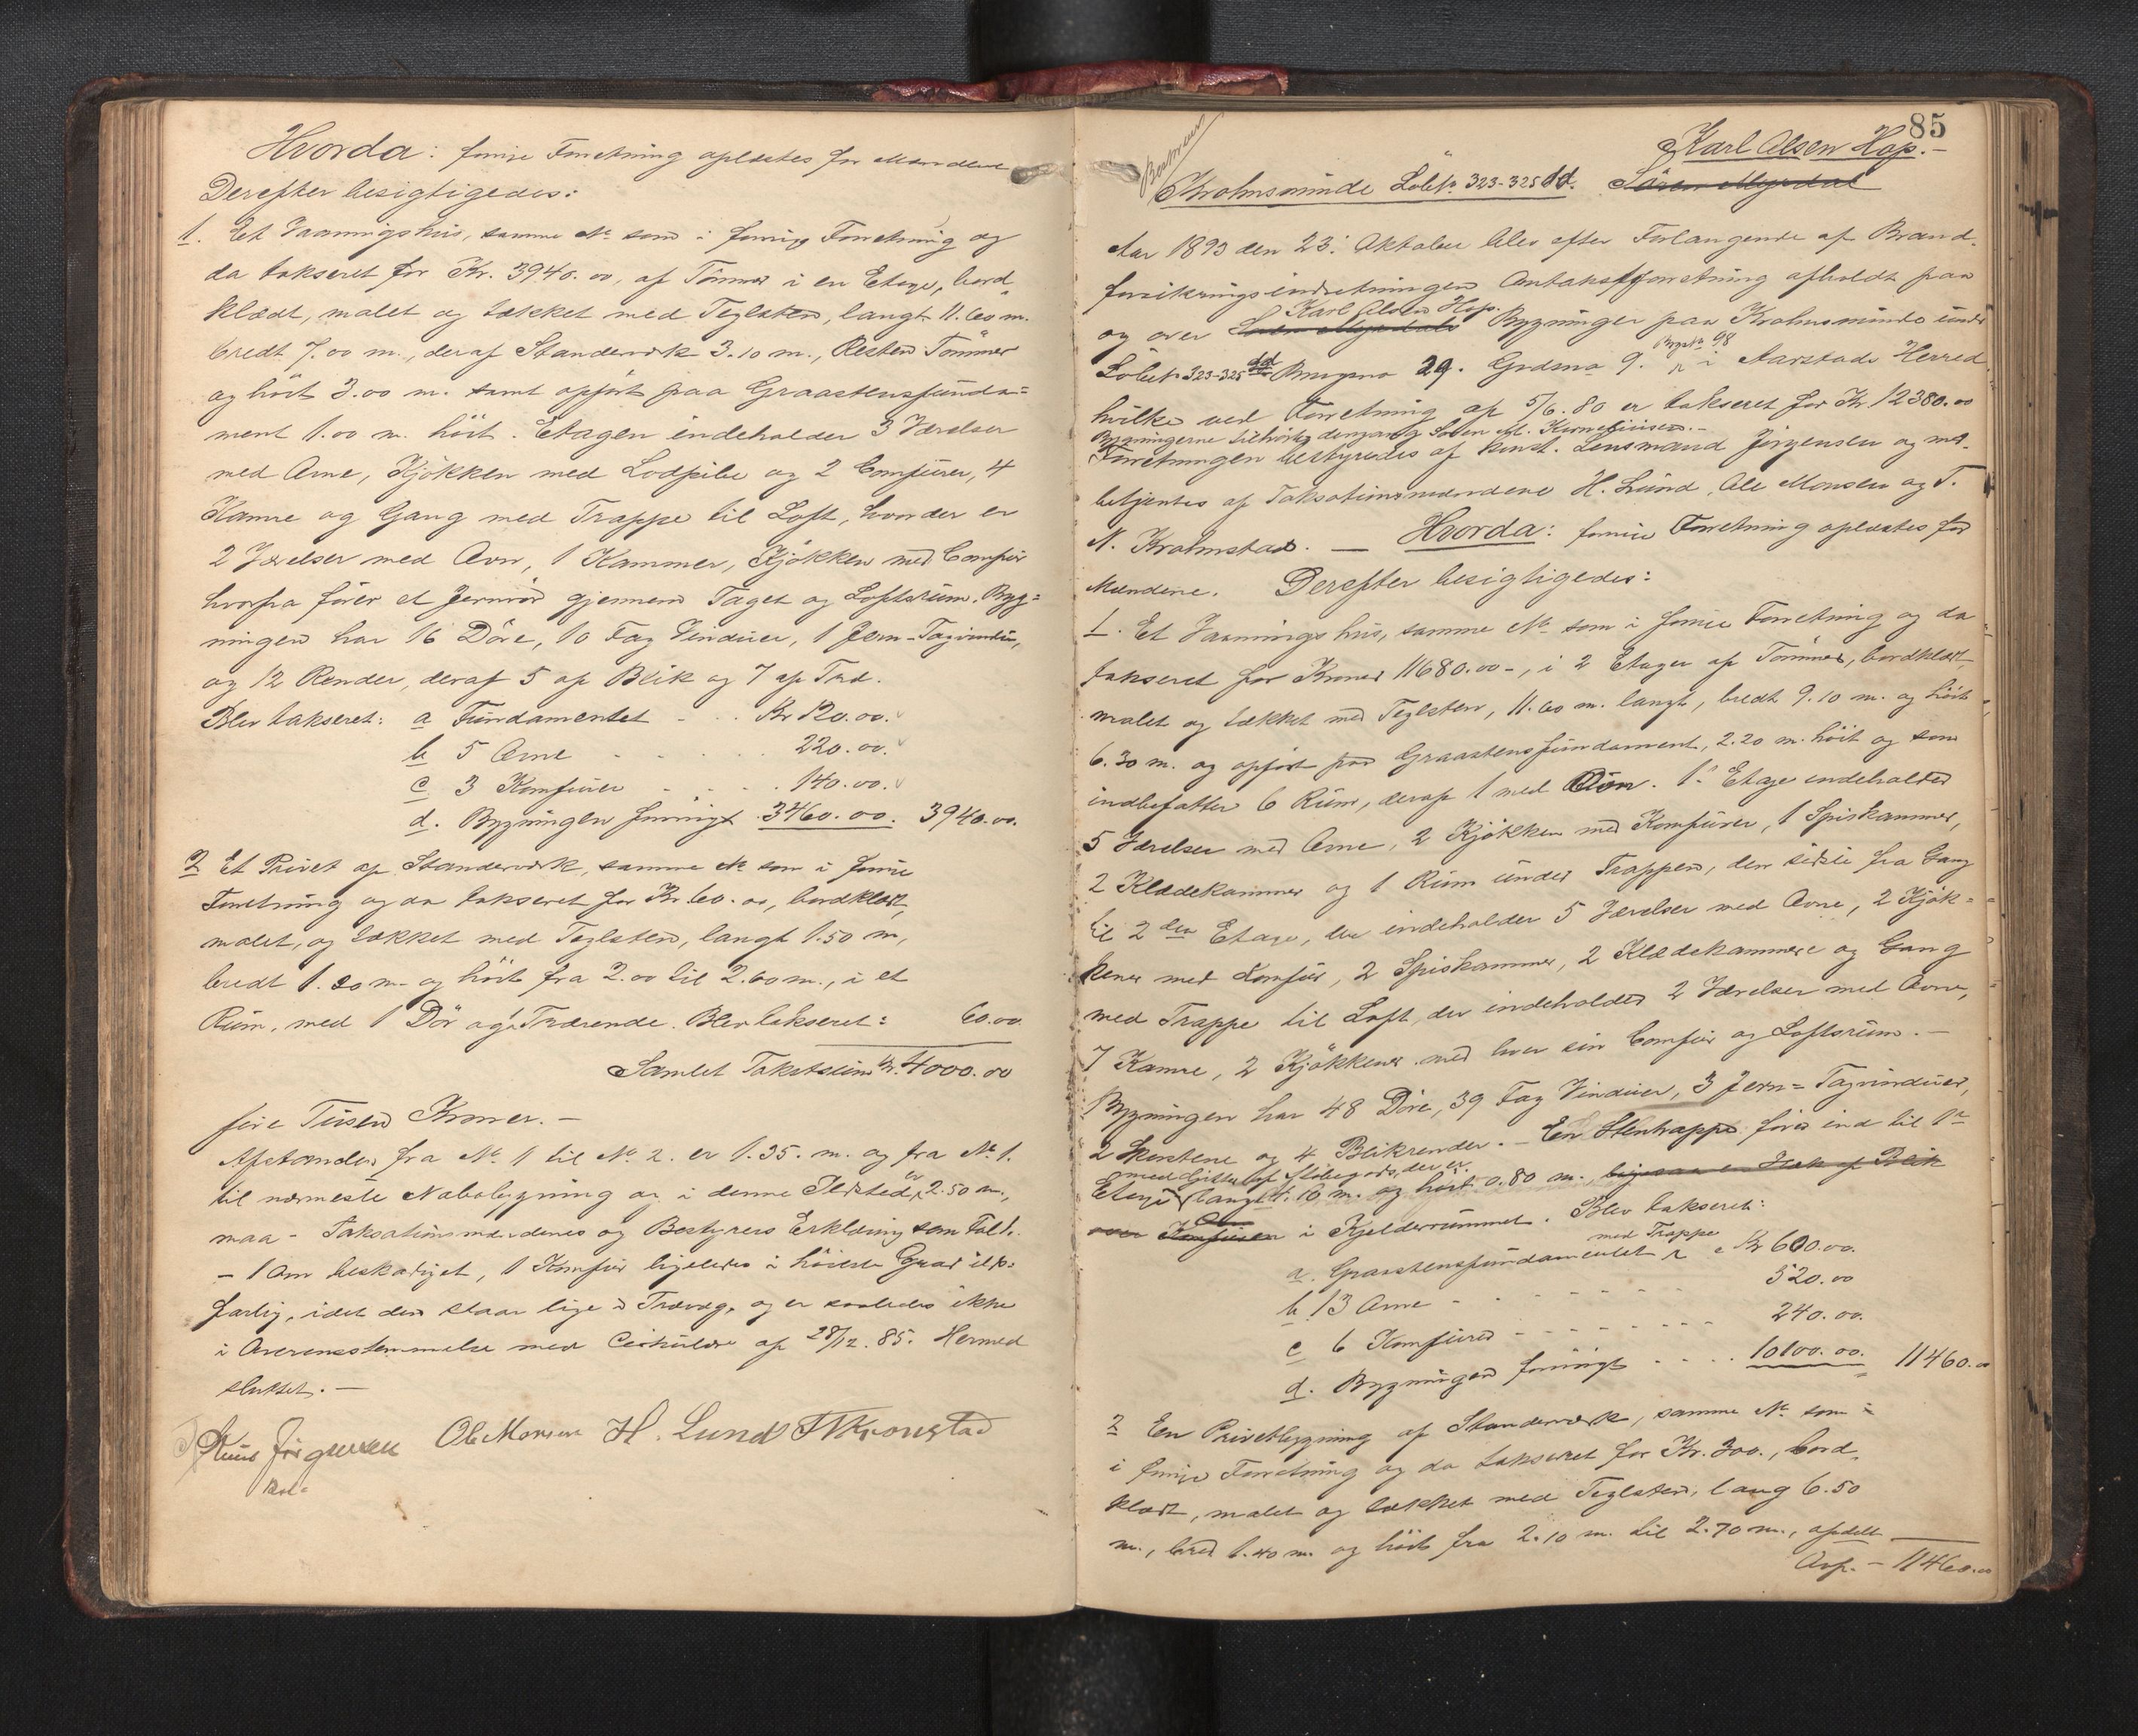 Hvorda: forrige Forretning oplæstes for Mændene
Derefter besigtigedes:
1. Et Vaaningshus, samme No som i forrige Forretning og
da takseret for Kr. 3940.00, af Tömmer i en Etage, bord
klædt, malet og tækket med Teglsten, langt 11.60 m.
bredt 7.00 m., deraf Standerværk 3.10 m., Resten Tömmer
og höit 3.00 m. samt opfört paa Graastensfunda=
ment 1.00 m. höit. Etagen indeholder 3 Værelser
med Ovne, Kjökken med Lodpibe og 2 Comfurer, 4
Kamre og Gang med Trappe til Loft, hvor der er
2 Værelser med Ovn, 1 Kammer, Kjökken med Comfur
hvorfra förer et Jernrör gjennem Taget og Loftsrum. Byg=
ningen har 16 Döre, 10 Fag Vinduer, 1 Jern-Tagvindu,
og 12 Render, deraf 5 af Blik og 7 af Træ.
Blev takseret: a Fundamentet - . . Kr 120.00.
b 5 Ovne - - - - 220.00.
c 3 Komfurer - - - . 140.00.
d. Bygningen forövrigt 3460.00. 3940.00.
2 Et Privet af Standerværk, samme No som i forrige
Forretning og da takseret for Kr. 60.00, bordklædt,
malet, og tækket med Teglsten, langt 1.50 m,
bredt 1.20 m. og höit fra 2.00 til 2.60 m., i et
Rum, med 1 Dör og 1 Trærende. Blev takseret: 60.00
Samlet Takstsum Kr. 4000.00
fire Tusen Kroner. -
Afstanden fra No. 1 til No. 2. er 1.35. m. og fra No. 1.
til nærmeste Nabobygning og i denne Ildsted, er 2.50 m.,
maa - Taksationsmændenes og Bestyrers Erklæring som Fol 1.
- 1 Ovn beskadiget, 1 Komfur ligeledes i höieste Grad ilds-
farlig, idet den staar lige i Trævæg, og er saaledes ikke
i Overensstemmelse med Cirkulære af 28/12. 85. Hermed
sluttet. -
Rius Jörgensen Ole Monsen H. Lund TNKronstad
85
Karl Olsen Hop. -
Krohnsminde Löbeno 323-325 dd. Sören Myrdal
Aar 1893 den 23. Oktober blev efter Forlangende af Brand-
forsikringsindretningen Omtakstforretning afholdt paa
Karl Olsen Hop.
og over Sören Myrdals Bygninger paa Krohnsminde under
Brgsno 98
Löbeno 323-325 dd Brugsno 29. Grdsno 9. i Aarstads Herred
hvilke ved Forretning af 5/6. 80 er takseret for Kr. 12380.00
Bygningerne tilhörte dengang Sören M. Korneliusen. -
Forretningen bestyredes af konst. Lensmand Jörgensen og med-
betjentes af Taksationsmændene H. Lund, Ole Monsen og T.
N. Krohnstad. - Hvorda: forrige Forretning oplæstes for
Mændene. Derefter besigtigedes:
1. Et Vaaningshus, samme No som i forrige Forretning og da
takseret for Kroner 11680.00 -, i 2 Etager af Tömmer, bordklædt,
malet og tækket med Teglsten, 11.60 m. langt, bredt 9.10 m. og höit
6.30 m. og opfört paa Graastensfundament, 2.20 m. höit og som
indbefatter 6 Rum, deraf 1 med Ovn. 1. Etage indeholder
5 Værelser med Ovne, 2 Kjökken med Komfurer, 1 Spiskammer,
2 Klædekammer og 1 Rum under Trappen, den sidste fra Gang
til 2den Etage, der indeholder 5 Værelser med Ovne, 2 Kjök=
kener med Komfur, 2 Spiskammer, 2 Klædekammere og Gang
med Trappe til Loft, der indeholder 2 Værelser med Ovne,
7 Kamre, 2 Kjökkener med hver sin Comfur og Loftsrum. -
Bygningen har 48 Döre, 39 Fag Vinduer, 3 Jern=Tagvinduer,
2 Skorstene og 4 Blikrender. - En Stentrappe förer ind til 1ste
med Gitter af Stöbegods, der er
Etage langt 1.10 m. og höit 0.80 m., ligesaa en Hat af Blik
over Komfuren i Kjelderrummet. Blev takseret:
med Trappe
a. Graastensfundamentet - Kr 600.00.
b. 13 Ovne - - - - - - 520.00
c 6 Komfurer - - - - - - 240.00.
d. Bygningen forövrigt - - - . 10100.00. 11460.00
2 En Privetbygning af Standerværk, samme No som i
i forrige Forretning og da takseret for Kr. 300., bord-
klædt, malet og tækket med Teglsten, lang 6.50
m., bred 1.40 m. og höit fra 2.10 m. til 2.70 m., afdelt
Ovf. - 11460.00